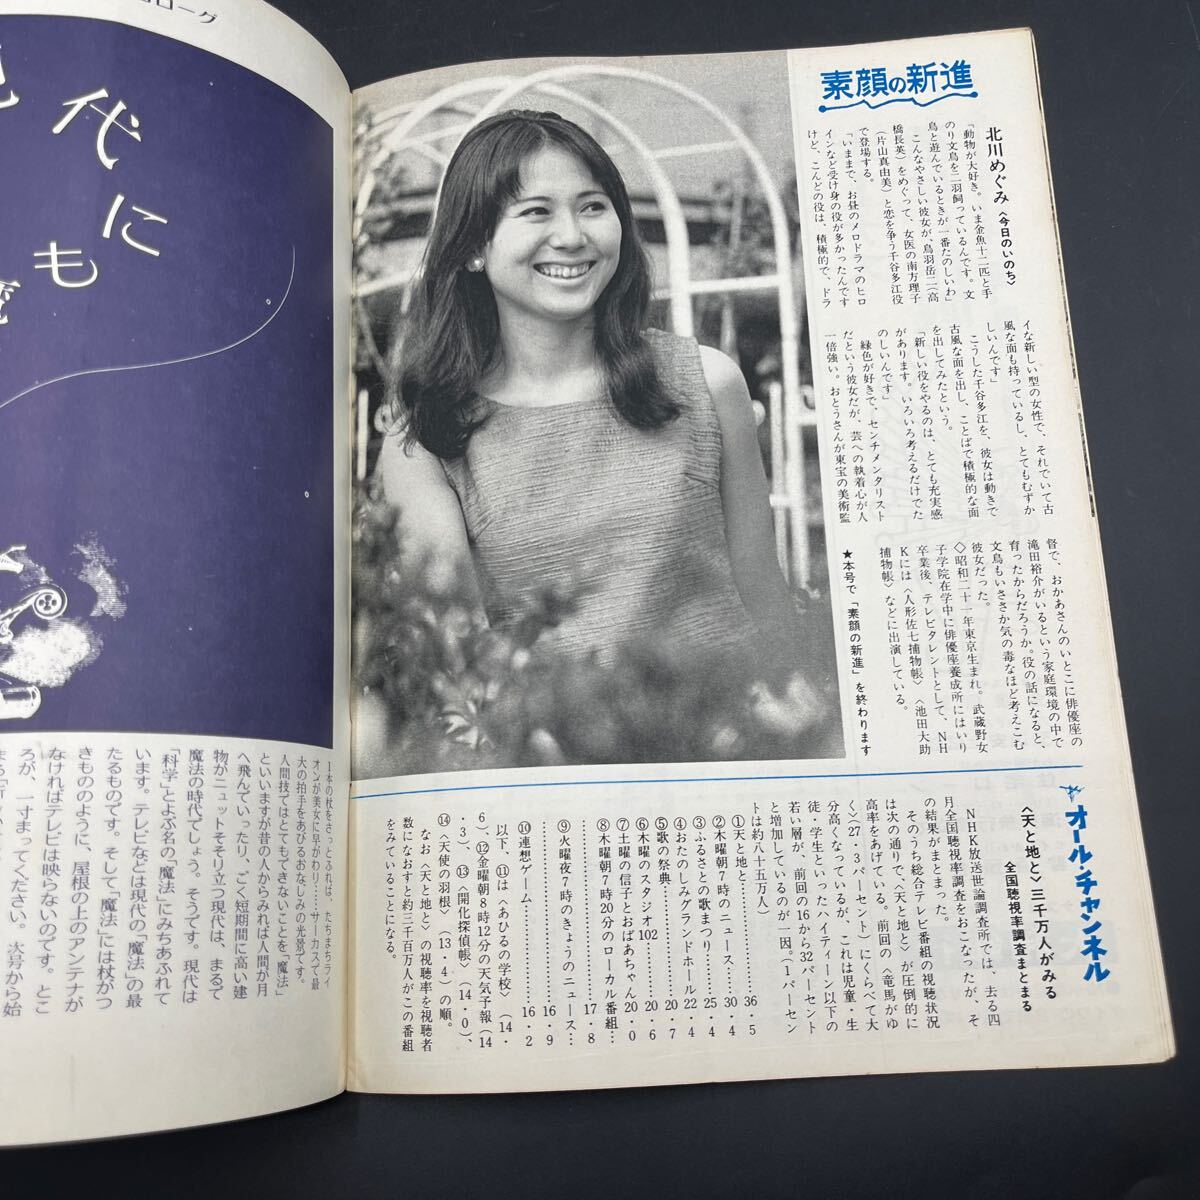 素顔の新進
北川めぐみ〈今日のいのち〉
「動物が大好き。いま金魚十二匹と手
のり文鳥を二羽飼っているんです。文
鳥と遊んでいるときが一番たのしいわ」
こんなやさしい彼女が、鳥羽岳二(高
橋長英)をめぐって、女医の南方理子
(片山真由美)と恋を争う千谷多江役
で登場する。
「いままで、お昼のメロドラマのヒロ
インなど受け身の役が多かったんです
けど、こんどの役は、積極的で、ドラ
イな新しい型の女性で、それでいて古
風な面も持っているし、とてもむずか
しいんです」
こうした千谷多江を、彼女は動きで
古風な面を出し、ことばで積極的な面
を出してみたという。
「新しい役をやるのは、とても充実感
があります。いろいろ考えるだけでた
のしいんです」
緑色が好きで、センチメンタリスト
だという彼女だが、芸への執着心が人
一倍強い。おとうさんが東宝の美術監
督で、おかあさんのいとこに俳優座の
滝田裕介がいるという家庭環境の中で
育ったからだろうか。役の話になると、
文鳥もいささか気の毒なほど考えこむ
彼女だった。
◇昭和二十一年東京生まれ。武蔵野女
子学院在学中に俳優座養成所にはいり
卒業後、テレビタレントとして、NH
Kには〈人形佐七捕物帳〉〈池田大助
捕物帳〉などに出演している。
★本号で「素顔の新進」を終わります
オール・チャンネル
〈天と地と〉三千万人がみる
全国聴視率調査まとまる
NHK放送世論調査所では、去る四
月全国聴視率調査をおこなったが、そ
の結果がまとまった。
そのうち総合テレビ番組の視聴状況
は次の通りで、〈天と地と〉が圧倒的に
高率をあげている。前回の〈竜馬がゆ
く〉27・3パーセント)にくらべて大
分高くなっているが、これは児童・生
徒・学生といったハイティーン以下の
若い層が、前回の16から32パーセント
と増加しているのが一因。(1パーセン
トは約八十五万人)
①天と地と………36・5
②木曜朝7時のニュース…30・4
③ふるさとの歌まつり……25・4
④おたのしみグランドホール22・4
⑤歌の祭典………20・7
⑥木曜のスタジオ102………20・6
⑦土曜の信子とおばあちゃん20・0
⑧木曜朝7時20分のローカル番組…
………17・8
⑨火曜夜7時のきょうのニュース…
………16・9
⑩連想ゲーム………16・2
以下、⑪は〈あひるの学校〉(14・
6)、⑫金曜朝8時12分の天気予報(14
・3)、⑬〈開化探偵帳〉(14・0)、
⑭〈天使の羽根〉(13・4)の順。
なお〈天と地と〉の視聴率を視聴者
数になおすと約三千百万人がこの番組
をみていることになる。
ローグ
代にも
1本の杖をさっとふれば、たちまちライ
オンが美女に早がわり……サーカスで最
大の拍手をあびるおなじみの光景です。
人間技ではとてもできないことを「魔法」
といいますが昔の人からみれば人間が月
へ飛んでいったり、ごく短期間に高い建
物がニュットそそり立つ現代は、まるで
魔法の時代でしょう。そうです。現代は
「科学」とよぶ名の「魔法」にみちあふれて
います。テレビなどは現代の「魔法」の最
たるものです。そして「魔法」には杖がつ
きもののように、屋根の上のアンテナが
なければテレビは映らないのです。とこ
ろが、一寸まってください。次号から始